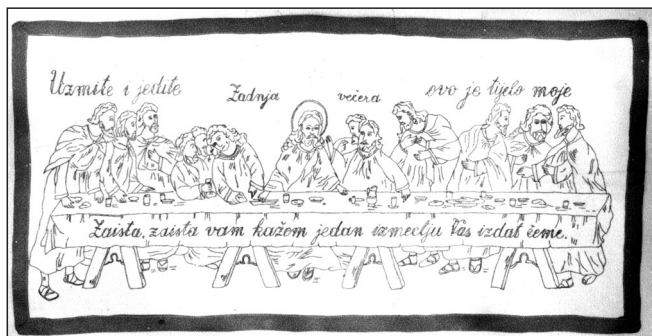 Uzmite i jedite Zadnja večera ovo je tijelo moje
Zaista, zaista vam kažem jedan izmedju Vas izdat čeme.